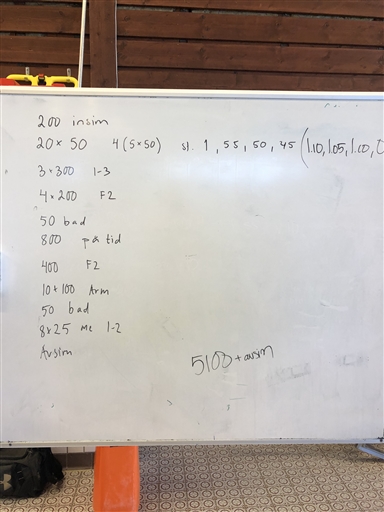 200 insim
20x50 4(5x50) st. 1, 55, 50, 45 (1.10, 1.05, 1.00,
3x300 1-3
4x200 F2
50 bad
800 på tid
400 F2
10+100 Arm
50 bad
8x25 me 1-2
Avsim
5100 + avsim